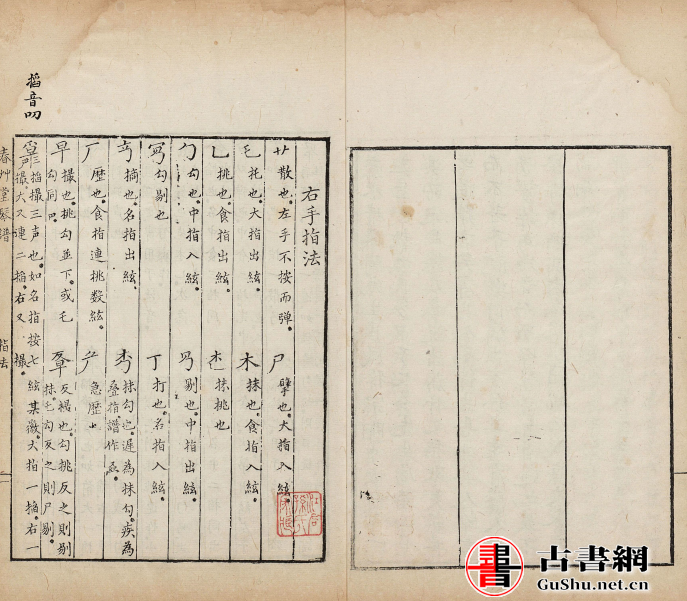 右手指法
艹 散也。左手不按而弹。
尸 擘也。大指入絃。
乇 托也。大指出絃。
木 抹也。食指入絃。
乚 挑也。食指出絃。
抹挑也
勹 勾也。中指入絃。
剔也。中指出絃。
勾剔也
丁 打也。名指入絃。
摘也。名指出絃。
抹勾也。遲為抹勾。疾為
叠指。譜作
厂 歷也。食指連挑数絃。
急歷也
早 撮也。挑勾並下。或乇
勾同
反撮也。勾挑反之則剔
抹。乇勾反之則尸剔。
掐撮三声也。如名指按七絃某徽。大指一掐。右一
撮。大又連二掐。右又撮。
掐音叨
春艸堂琴譜
指法
一
古書網
GuShu.net.cn